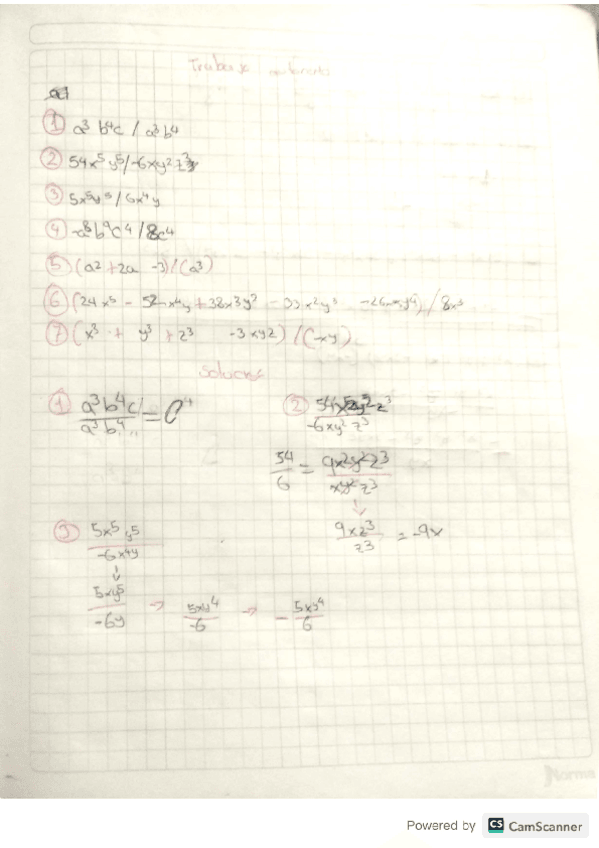 ① a³ b⁴c / a³b⁴
② 54x⁵y⁵/-6xy²z³
③ 5x⁵y⁵/6x⁴y
④ -a⁸b⁹c⁴/8c⁴
⑤ (a² + 2a -3)/(a³)
⑥ (24x⁵ - 52x⁴y + 38x³y² - 33x²y³
⑦ (x³ + y³ + z³ -3xyz) / (-xy)
① a³b⁴c / a³b⁴ =
② / -6xy² z³
54 / 6 = 9x²y²z³ / xy²z³
↓
9xz³ / z³ = -9x
③ 5x⁵y⁵ / -6x⁴y
↓
5xy⁵ / -6y → 5xy⁴ / -6 → - 5xy⁴ / 6
Norma
Powered by CS CamScanner